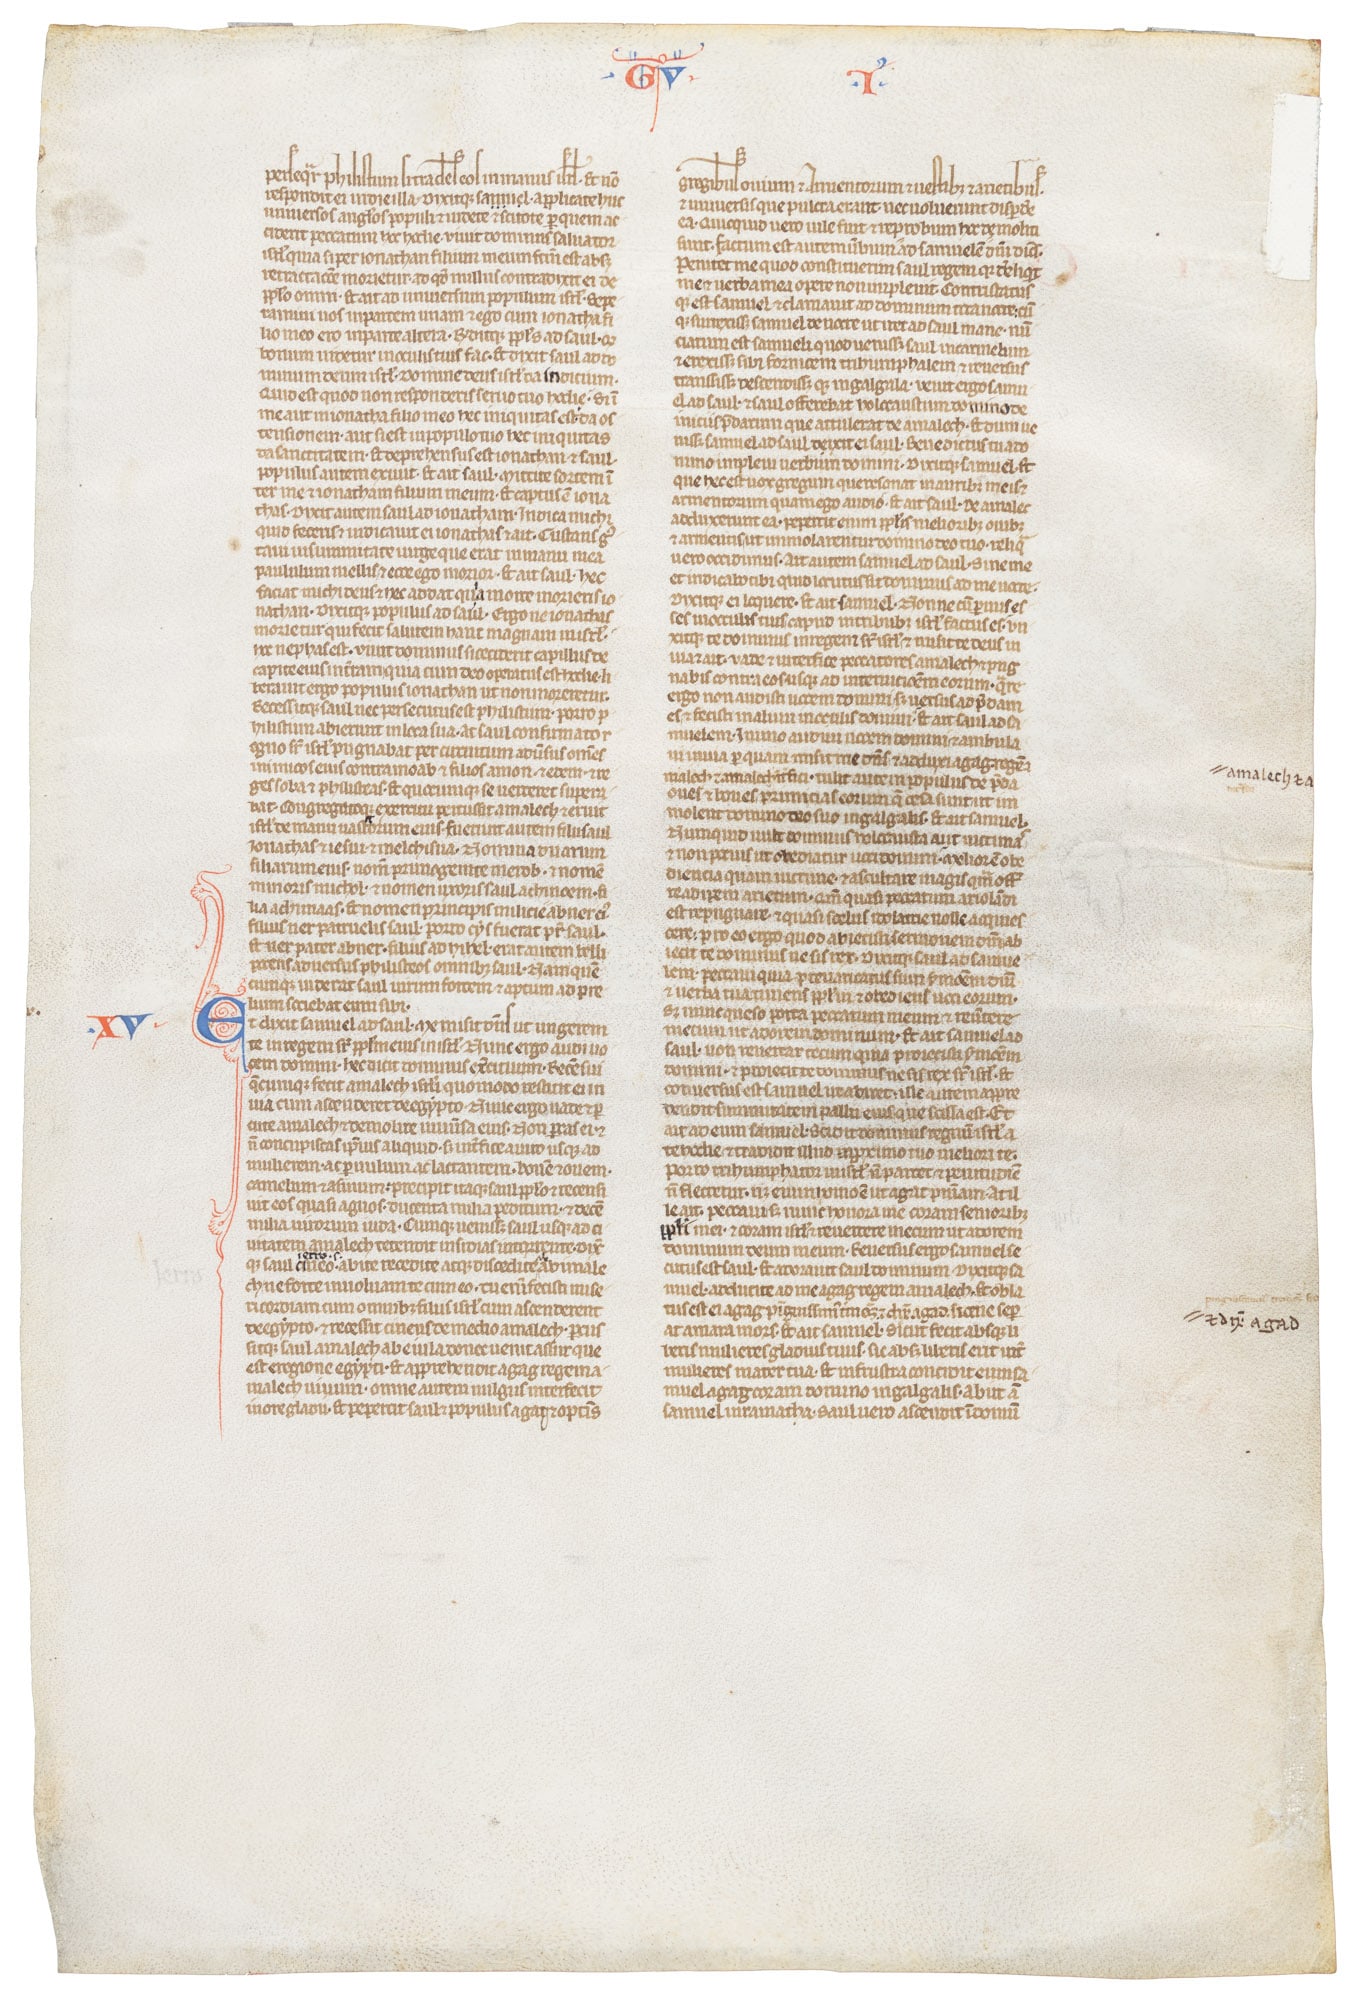 GV I
persequar philistim si trades eos in manus isrl. Et nō
respondit ei in die illa. Dixitq; samuel. applicate huc
universos anglos populi & videte & scitote per quem ac
ciderit peccatum hoc hodie. vivit dominus salvator
isrl quia si per ionathan filium meum factum est absq;
retractacōe morietur. ad qd nullus contradixit ei de
pplo omni. Et ait ad universum populum isrl. Sepe
ramini vos in partem unam & ego cum ionatha fi
lio meo ero in parte altera. & ditq; ppls ad saul. qd
bonum videtur in oculis tuis fac. Et dixit saul ad do
minum deum isrl. Domine deus isrl da indicium.
Quid est quod non responderis servo tuo hodie. Si ī
me aut in ionatha filio meo hec iniquitas est. da os
tensionem. aut si est in populo tuo hec iniquitas
da sanctitatem. Et deprehensus est ionathan & saul.
populus autem exivit. Et ait saul. Mittite sortem ī
ter me & ionatham filium meum. Et captus ē iona
thas. Dixit autem saul ad ionathan. Indica michi
quid feceris & indicavit ei ionathas & ait. Gustans gus
tavi in summitate virge que erat in manu mea
paululum mellis & ecce ego morior. Et ait saul. hec
faciat michi deus & hec addat quia morte morieris io
nathan. Dixitq; populus ad saul. Ergo ne ionathas
morietur qui fecit salutem hanc magnam in isrl.
hoc nephas est. vivit dominus si ceciderit capillus de
capite eius in terram quia cum deo operatus est hodie. li
beravit ergo populus ionathan ut non moreretur.
Recessitq; saul nec persecutus est philistim. porro p
hilistim abierunt in loca sua. At saul confirmato r
egno sr isrl pugnabat per circuitum adversus omēs
inimicos eius contra moab & filios amon. & edom & re
ges soba & philisteos. Et quocumq; se verterat supera
bat. Congregatoq; exercitu percussit amalech & eruit
isrl de manu vastorum eius. fuerunt autem filii saul
Ionathas & iesui & melchisua. Nomina duarum
filiarum eius. nomē primogenite merob. & nomē
minoris michol. & nomen uxoris saul achinoem. fi
lia achimaas. Et nomen principis milicie abner ei
filius ner patruelis saul. porro cys fuerat pr saul.
Et ner pater abner. filius ad hirel. erat autem belli
potens adversus philisteos omnibz saul. Nam quē
cumq; viderat saul virum fortem & aptum ad pre
lium sociebat eum sibi.
XV
Et dixit samuel ad saul. Me misit dns ut ungerem
te in regem sr pplm eius in isrl. Nunc ergo audi vo
cem domini. hec dicit dominus exercituum. Recensui
qcumq; fecit amalech isrli quomodo restitit ei in
via cum ascenderet de egypto. Nunc ergo vade & per
cute amalech & demolire universa eius. Non parcas ei &
nō concupiscas ipsius aliquid. sz interfice a viro usq; ad
mulierem. ac parvulum ac lactantem. bovem & ovem.
camelum & asinum. precipit itaq; saul pplo & recensu
it eos quasi agnos. ducenta milia peditum. & decē
milia virorum iuda. Cumq; venisset saul usq; ad ci
vitatem amalech tetendit insidias in torrente. Dix
ietro. s.
q; saul cineo. abite recedite atq; discedite ab amale
ch ne forte involvam te cum eo. tu enim fecisti mise
ricordiam cum omnibz filiis isrl cum ascenderent
de egypto. & recessit cineus de medio amalech. percus
sitq; saul amalech ab evila donec veniat assur que
est e regione egypti. Et apprehendit agag regem a
malech vivum. omne autem vulgus interfecit
in ore gladii. Et pepercit saul & populus agag & optimis
gregibus ovium & Armentorum & vestibz & arietibus.
& universis que pulcra erant. nec voluerunt disperde
ea. Quicquid vero vile fuit & reprobum hoc demoliti
sunt. factum est autem verbum ad samuelē dni dicēs.
Penitet me quod constituerim saul regem qr dereliqit
me & verba mea opere non implevit. Contristatus
q; est samuel & clamavit ad dominum tota nocte. cū
q; surrexisset samuel de nocte ut iret ad saul mane. nū
ciatum est samueli quod venisset saul in carmelum
& erexisset sibi fornicem triumphalem & reversus
transisset descendissetq; in galgala. venit ergo samu
el ad saul. & saul offerebat holocaustum domino de
iniciis predarum que attulerat de amalech. Et dum ve
nisset samuel ad saul dixit ei saul. Benedictus tu a do
mino implevi verbum domini. Dixitq; samuel. Et
que hec est vox gregum que resonat in auribz meis &
armentorum quam ego audio. Et ait saul. De amalec
adduxerunt ea. pepercit enim ppls melioribz ovibz
& armentis ut immolarentur domino deo tuo. reliq
vero occidimus. Ait autem samuel ad saul. Sine me
et indicabo tibi quid locutus sit dominus ad me nocte.
Dixitq; ei loquere. Et ait samuel. Nonne cū parvus es
ses in oculis tuis caput in tribubz isrl factus es. un
xitq; te dominus in regem sr isrl & misit te deus in
via & ait. vade & interfice peccatores amalech & pug
nabis contra eos usq; ad internitionem eorum. Quare
ergo non audisti vocem domini sz versus ad predam
es & fecisti malum in oculis domini. Et ait saul ad sa
muelem. Immo audivi vocem domini & ambula
vi in via per quam misit me dns & adduxi agag regē a
malech & amalech interfeci. tulit autem populus de preda
oves & boves primicias eorum que cesa sunt ut im
molent domino deo suo in galgalis. Et ait samuel.
Numquid vult dominus holocausta aut victimas
& non pocius ut obediatur voci domini. Melior ē obe
diencia quam victime. & ascultare magis qm offer
re adipem arietum. qm quasi peccatum ariolandi
est repugnare. & quasi scelus ydolatrie nolle acquies
cere. pro eo ergo quod abiecisti sermonem dni ab
iecit te dominus ne sis rex. Dixitq; saul ad samue
lem. peccavi quia prevaricatus sum sermonem dni
& verba tua timens pplm & obediens voci eorum.
sz nunc queso porta peccatum meum & revertere
mecum ut adorem dominum. Et ait samuel ad
saul. non revertar tecum quia proiecisti sermonem
domini. & proiecit te dominus ne sis rex sr isrl. Et
conversus est samuel ut abiret. ille autem appre
hendit summitatem pallii eius que scissa est. Et
ait ad eum samuel. Scidit dominus regnū isrl a
te hodie & tradidit illud proximo tuo meliori te.
Porro trihumphator in isrl nō parcet & penitudinē
nō flectetur. neq; enim homo ē ut agat penitentiam. At il
le ait. peccavi sz nunc honora me coram senioribz
ppli mei. & coram isrl & revertere mecum ut adorem
dominum deum meum. Reversus ergo samuel se
cutus est saul. Et adoravit saul dominum. Dixitq; sa
muel. adducite ad me agag regem amalech. Et obla
tus est ei agag pinguissimus tremens & dixit agad. siccine sepa
rat amara mors. Et ait samuel. Sicut fecit absq; li
beris mulieres gladius tuus. sic absq; liberis erit inter
mulieres mater tua. Et in frustra concidit eum sa
muel agag coram domino in galgalis. Abiit autem
samuel in ramatha. Saul vero ascendit ī domū
amalech & a
& dix agad